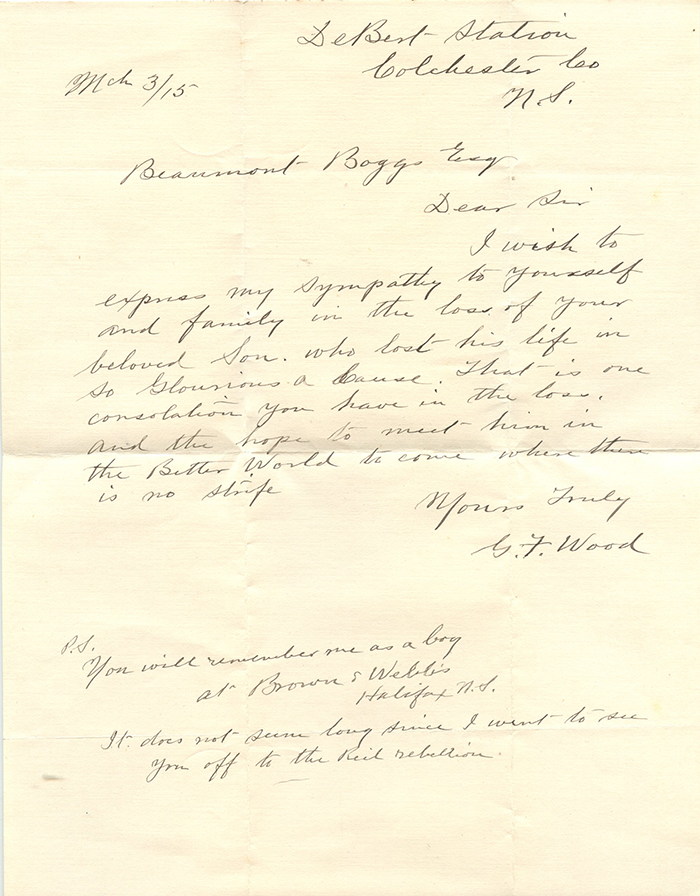 DeBert Station
Colchester Co
N.S.
Mch 3/15
Beaumont Boggs Esq
Dear Sir
I wish to
express my sympathy to yourself
and family in the loss of your
beloved Son. who lost his life in
so Glourious a Cause. That is one
consolation you have in the loss.
and the hope to meet him in
the Better World to come where there
is no strife
Yours Truly
G. F. Wood
P.S.
You will remember me as a boy
at Brown & Webbs
Halifax N.S.
It does not seem long since I went to see
you off to the Reil rebellion.